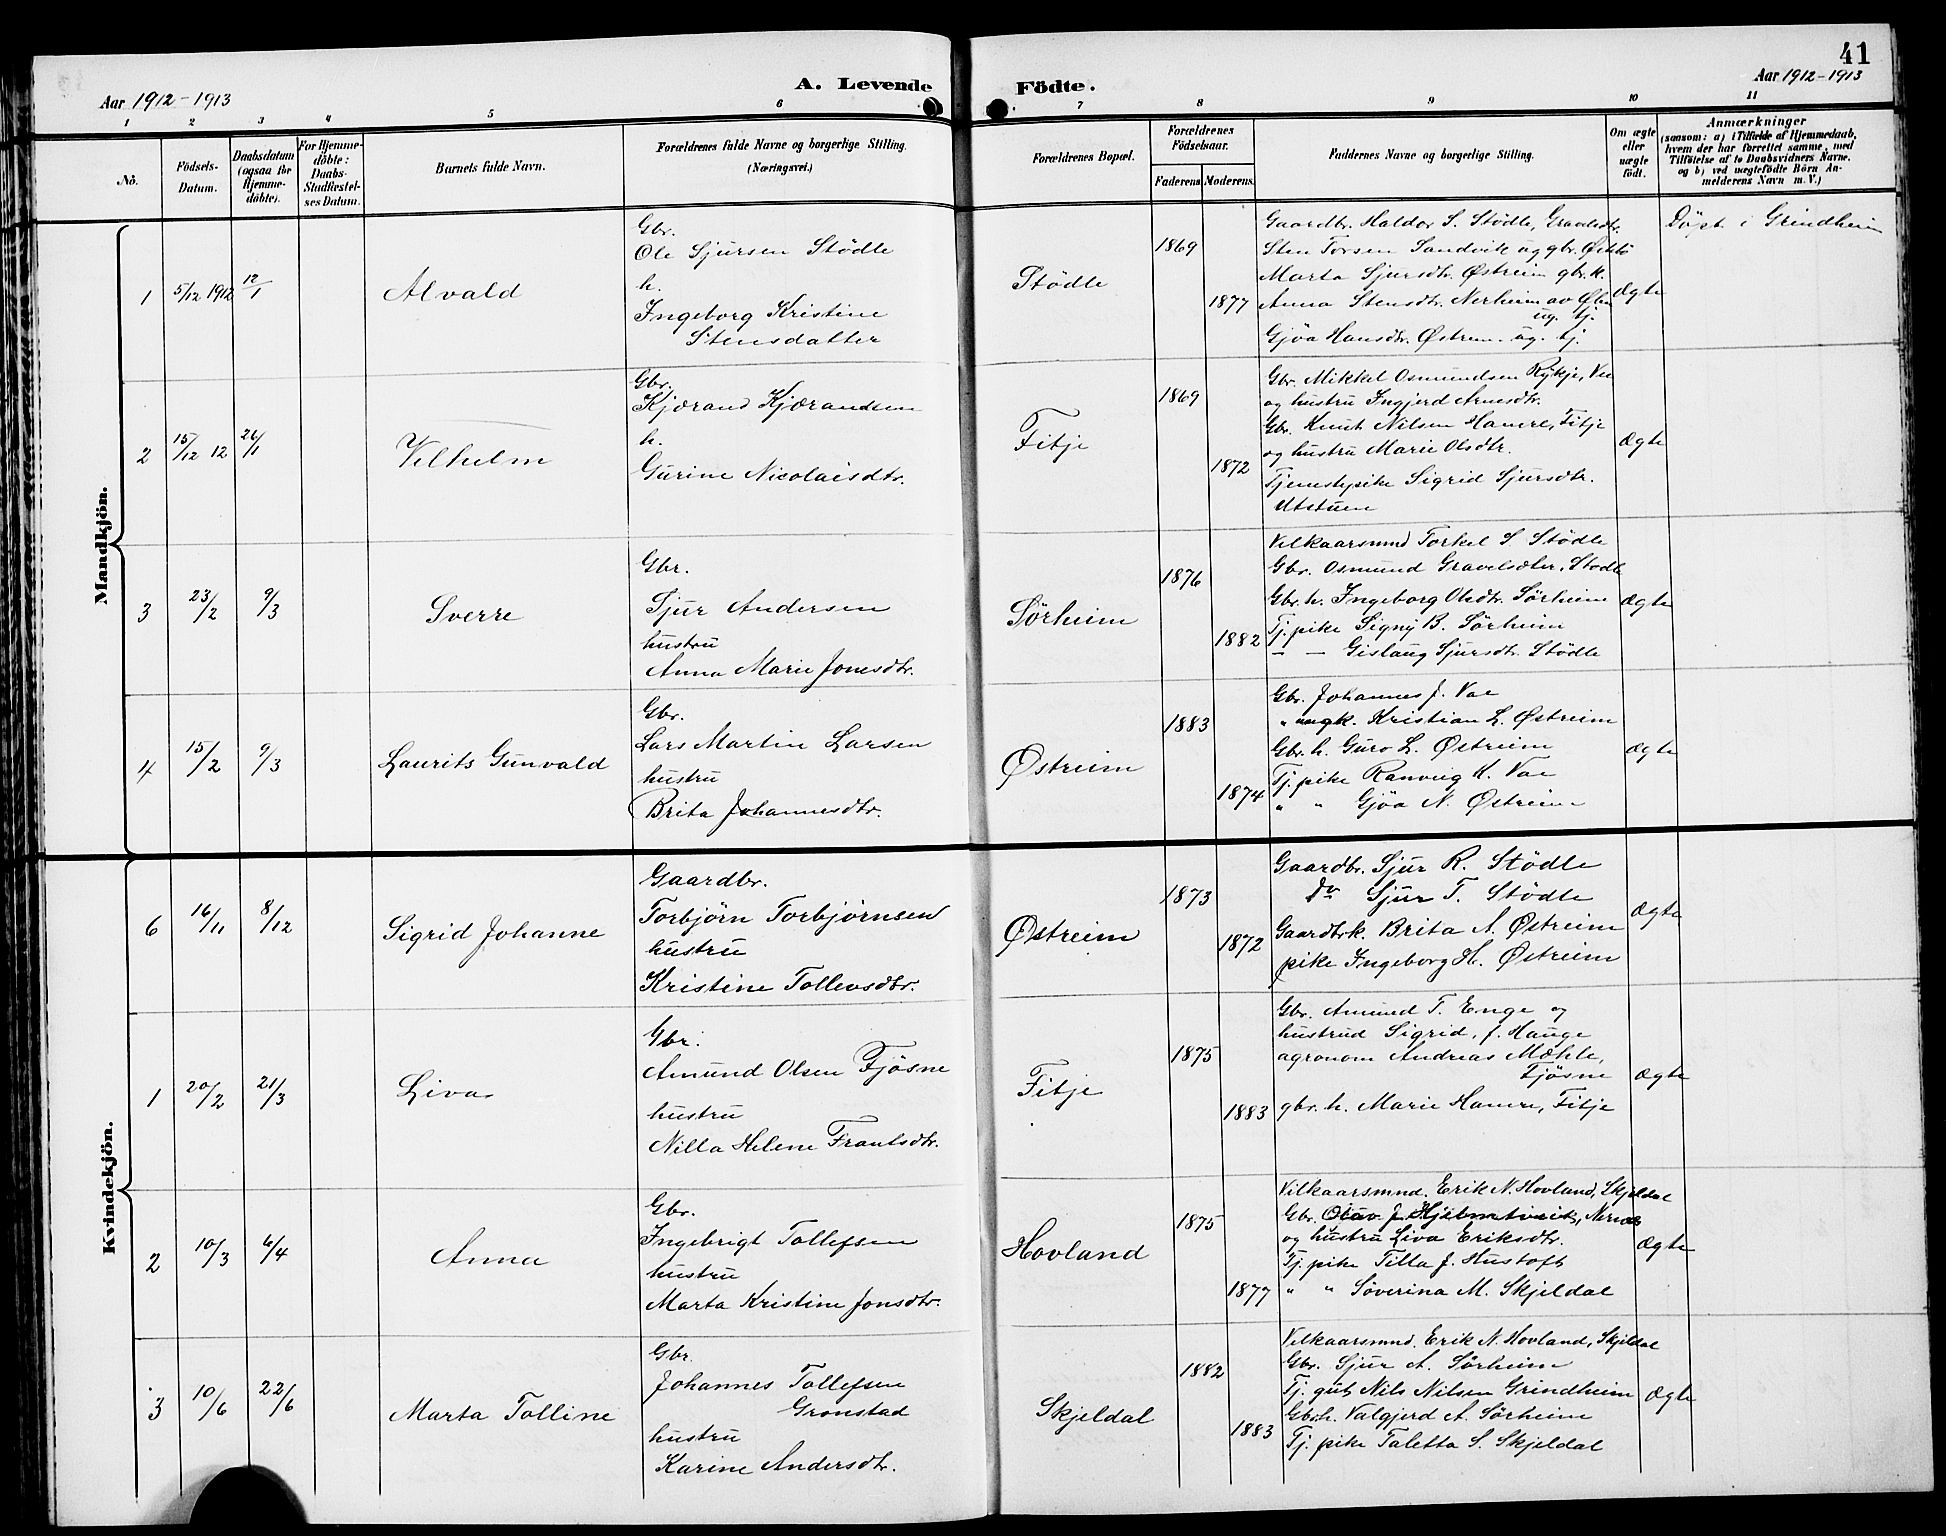 41
Aar 1912-1913
A. Levende Födte.
Aar 1912-1913
1 2 3 4 5 6 7 8 9 10 11
No.
Födsels-
Datum.
Daabsdatum
(ogsaa for
Hjemme-
döbte).
For Hjemme-
döbte:
Daabs-
Stadfæstel-
ses Datum.
Barnets fulde Navn.
Forældrenes fulde Navne og borgerlige Stilling.
(Næringsvei.)
Forældrenes Bopæl.
Forældrenes
Födselsaar.
Faderens. Moderens.
Faddernes Navne og borgerlige Stilling.
Om ægte
eller
uægte
födt.
Anmærkninger
(saasom: a) i Tilfælde af Hjemmedaab,
hvem der har forrettet samme, med
Tilföielse af to Daabsvidners Navne.
og b) ved uægtefödte Börn An-
melderens Navn m. V.)
Mandkjön.
1 5/12 1912 12/1
Alvald
Gbr.
Ole Sjursen Stödle
h.
Ingeborg Kristine
Stensdatter
Stödle
1869
1877
Gaardbr. Haldor S. Stödle,
Sten Torsen Sandvik ug gbr.
Marta Sjursdtr. Østreim gbr.k.
Anna Stensdtr. Nerheim av Ølen
ug. tj.
Gjöa Hansdtr. Østreim ug. tj.
Ægte
Döpt i Grindheim
2 15/12 12 26/1
Vilhelm
Gbr.
Kjærand Kjærandsen
h.
Gurine Nicolaisdtr.
Fitje
1869
1872
Gbr. Mikkel Osmundsen Rykje, Vae
og hustru Ingjerd Arnesdtr.
Gbr. Knut Nilsen Hamre, Fitje
og hustru Marie Olsdtr.
Tjenestepike Sigrid Sjursdtr.
Utstuen
Ægte
3 23/2 9/3
Sverre
Gbr.
Sjur Andersen
hustru
Anna Marie Jonesdtr.
Sörheim
1876
1882
Vilkaarsmnd Torkel S Stödle
Gbr. Osmund Gravelsæter, Stödle
Gbr. h. Ingeborg Olsdtr. Sörheim
Tj. pike Signy B. Sörheim
— — Gislaug Sjursdtr. Stödle
Ægte
4 15/2 9/3
Laurits Gunvald
Gbr.
Lars Martin Larsen
hustru
Brita Johannesdtr.
Østreim
1883
1874
Gbr. Johannes J. Vae
" ungk. Kristian L. Østreim
Gbr. h. Guro L. Østreim
Tj. pike Ranveig K. Vae
" " Gjöa N. Østreim
Ægte
Kvindekjön.
6 16/11 8/12
Sigrid Johanne
Gaardbr.
Torbjörn Torbjörnsen
hustru
Kristine Tollevsdtr.
Østreim
1873
1872
Gaardbr. Sjur R. Stödle
Do Sjur T. Stödle
Gaardbrk. Brita A. Østreim
pike Ingeborg H. Østreim
Ægte
1 20/2 21/3
Liva
Gbr.
Amund Olsen Fjösne
hustru
Nilla Helene Frantsdtr.
Fitje
1875
1883
Gbr. Amund T. Enge og
hustrud Sigrid, J. Hauge
agronom Andreas Mæhle,
Fjösne
gbr. h. Marie Hamre, Fitje
Ægte
2 10/3 6/4
Anna
Gbr.
Ingebrigt Tollefsen
hustru
Marta Kristine Jonsdtr.
Hovland
1875
1877
Vilkaarsmnd. Erik N. Hovland, Skjeldal
Gbr. Olav J. Hjelmtveit, Nernes
og hustru Liva Eriksdtr.
Tj. pike Tilla J. Hustoft
" " Söverina M. Skjeldal
Ægte
3 10/6 22/6
Marta Tolline
Gbr.
Johannes Tollefsen
Grönstad
hustru
Karine Andersdtr.
Skjeldal
1882
1883
Vilkaarsmnd. Erik N. Hovland, Skjeldal
Gbr. Sjur A. Sörheim
Tj. gut Nils Nilsen Grindheim
Gbr.h. Valgjerd A. Sörheim
Tj. pike Taletta S. Skjeldal
Ægte